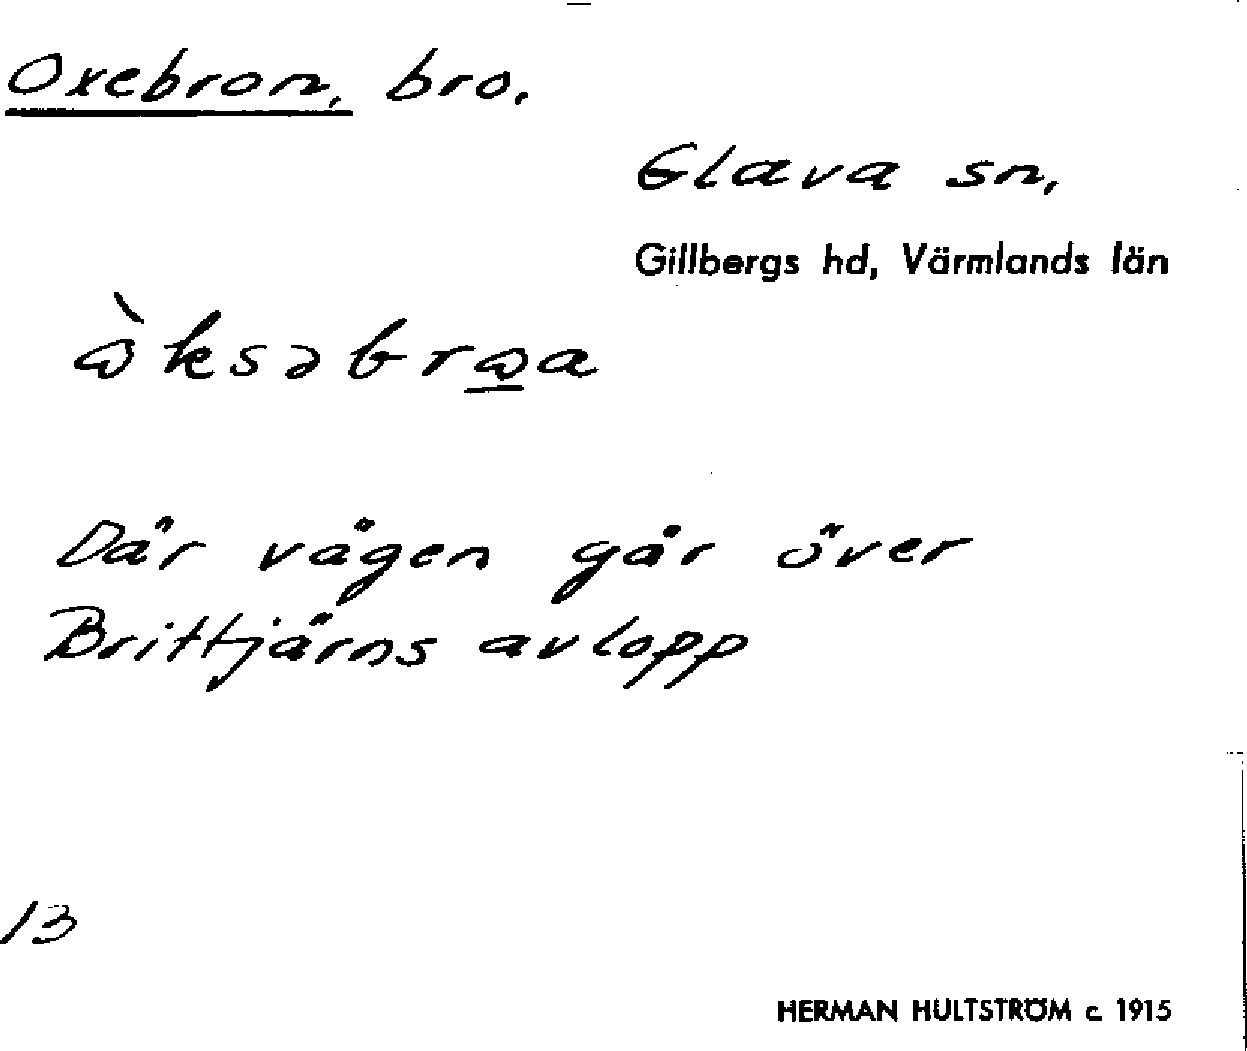 Oxebron, bro.
Glava sn,
Gillbergs hd, Värmlands län
Där vägen går över
Brittjärns avlopp
13
HERMAN HULTSTRÖM c. 1915